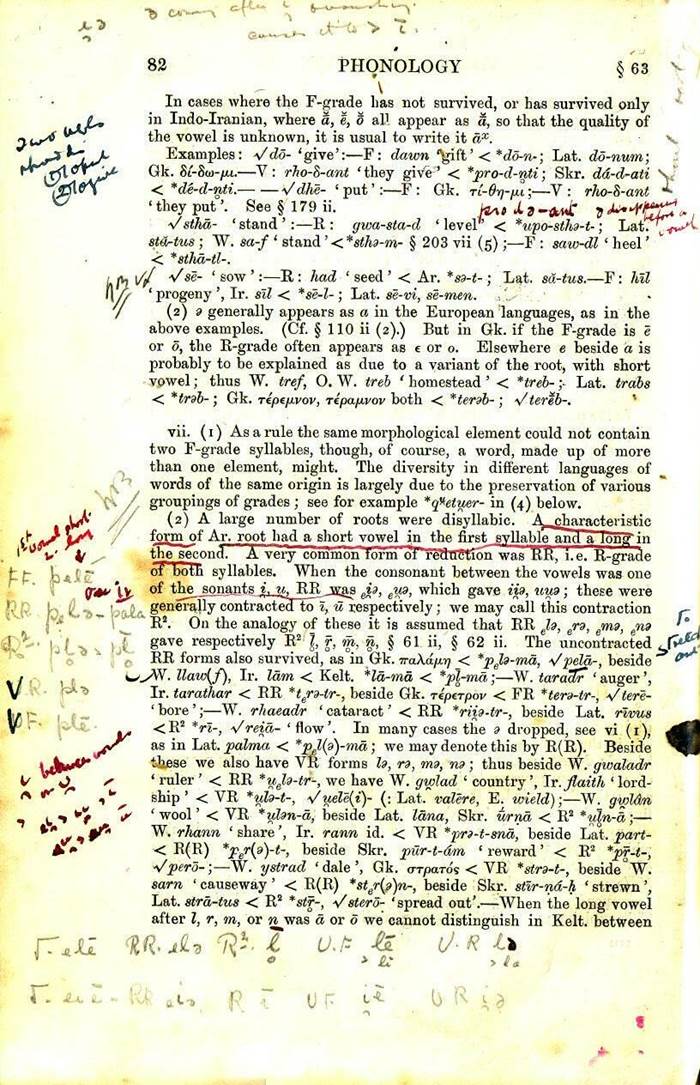 ə comes after
causes it to > ī.
82 PHONOLOGY § 63
In cases where the F-grade has not survived, or has survived only
in Indo-Iranian, where ā̆, ē̆, ō̆ all appear as ā̆, so that the quality of
the vowel is unknown, it is usual to write it āˣ.
Examples: √dō- ‘give’:—F: dawn ‘gift’ < *dō-n-; Lat. dōnum;
Gk. δί-δω-μι.—V: rho-δ-ant ‘they give’ < *pro-d-n̥ti; Skr. dá-d-ati
< *dé-d-n̥ti.——√dhē- ‘put’:—F: Gk. τί-θη-μι;—V: rho-δ-ant
‘they put’. See § 179 ii.
pro də-ant ə disappears before a vowel
√sthā- ‘stand’:—R: gwa-sta-d ‘level’ < *upo-sthə-t-; Lat.
stă-tus; W. sa-f ‘stand’ < *sthə-m- § 203 vii (5);—F: saw-dl ‘heel’
< *sthā-tl-.
√sē- ‘sow’:—R: had ‘seed’ < Ar. *sə-t-; Lat. să-tus.—F: hīl
‘progeny’, Ir. sīl < *sē-l-; Lat. sē-vi, sē-men.
(2) ə generally appears as a in the European languages, as in the
above examples. (Cf. § 110 ii (2).) But in Gk. if the F-grade is ē
or ō, the R-grade often appears as ε or ο. Elsewhere e beside a is
probably to be explained as due to a variant of the root, with short
vowel; thus W. tref, O. W. treb ‘homestead’ < *treb-; Lat. trabs
< *trəb-; Gk. τέρεμνον, τέραμνον both < *terəb-; √terē̆b-.
vii. (1) As a rule the same morphological element could not contain
two F-grade syllables, though, of course, a word, made up of more
than one element, might. The diversity in different languages of
words of the same origin is largely due to the preservation of various
groupings of grades; see for example *qᵘ̯etu̯er- in (4) below.
NB
(2) A large number of roots were disyllabic. A characteristic
form of Ar. root had a short vowel in the first syllable and a long in
the second. A very common form of reduction was RR, i.e. R-grade
of both syllables. When the consonant between the vowels was one
of the sonants i, u, RR was ₑi̯ə, ₑu̯ə, which gave ii̯ə, uu̯ə; these were
generally contracted to ī, ū respectively; we may call this contraction
R². On the analogy of these it is assumed that RR ₑlə, ₑrə, ₑmə, ₑnə
gave respectively R² l̥̄, r̥̄, m̥̄, n̥̄, § 61 ii, § 62 ii. The uncontracted
RR forms also survived, as in Gk. παλάμη < *pₑlə-mā, √pelā-, beside
W. llaw(f), Ir. lām < Kelt. *lā-mā < *pl̥̄-mā;—W. taradr ‘auger’,
Ir. tarathar < RR *tₑrə-tr-, beside Gk. τέρετρον < FR *terə-tr-, √terē-
‘bore’;—W. rhaeadr ‘cataract’ < RR *rii̯ə-tr-, beside Lat. rīvus
< R² *rī-, √rei̯ā- ‘flow’. In many cases the ə dropped, see vi (1),
as in Lat. palma < *pₑl(ə)-mā; we may denote this by R(R). Beside
these we also have VR forms lə, rə, mə, nə; thus beside W. gwaladr
‘ruler’ < RR *u̯ₑlə-tr-, we have W. gwlad ‘country’, Ir. flaith ‘lord-
ship’ < VR *u̯lə-t-, √u̯elē(i)- (: Lat. valēre, E. wield);—W. gwlân
‘wool’ < VR *u̯lən-ā, beside Lat. lāna, Skr. ū́rṇā < R² *u̯l̥̄n-ā;—
W. rhann ‘share’, Ir. rann id. < VR *prə-t-snā, beside Lat. part-
< R(R) *pₑr(ə)-t-, beside Skr. pūr-t-ám ‘reward’ < R² *pr̥̄-t-,
√perō-;—W. ystrad ‘dale’, Gk. στρατός < VR *strə-t-, beside W.
sarn ‘causeway’ < R(R) *stₑr(ə)n-, beside Skr. stīr-ṇá-ḥ ‘strewn’,
Lat. strā-tus < R² *str̥̄-, √sterō- ‘spread out’.—When the long vowel
after l, r, m, or n was ā or ō we cannot distinguish in Kelt. between
1st vowel short
2. long
FF. pelē
RR pₑlə-pala
R². pl̥ə-pl̥̄
VR. plə
VF. plē.
to
stretch
out
√. elē RR. elə R². l̥̄ V.F. lē V.R lə
√. eiē- RR eiə R ī VF i̯ē VR i̯ə